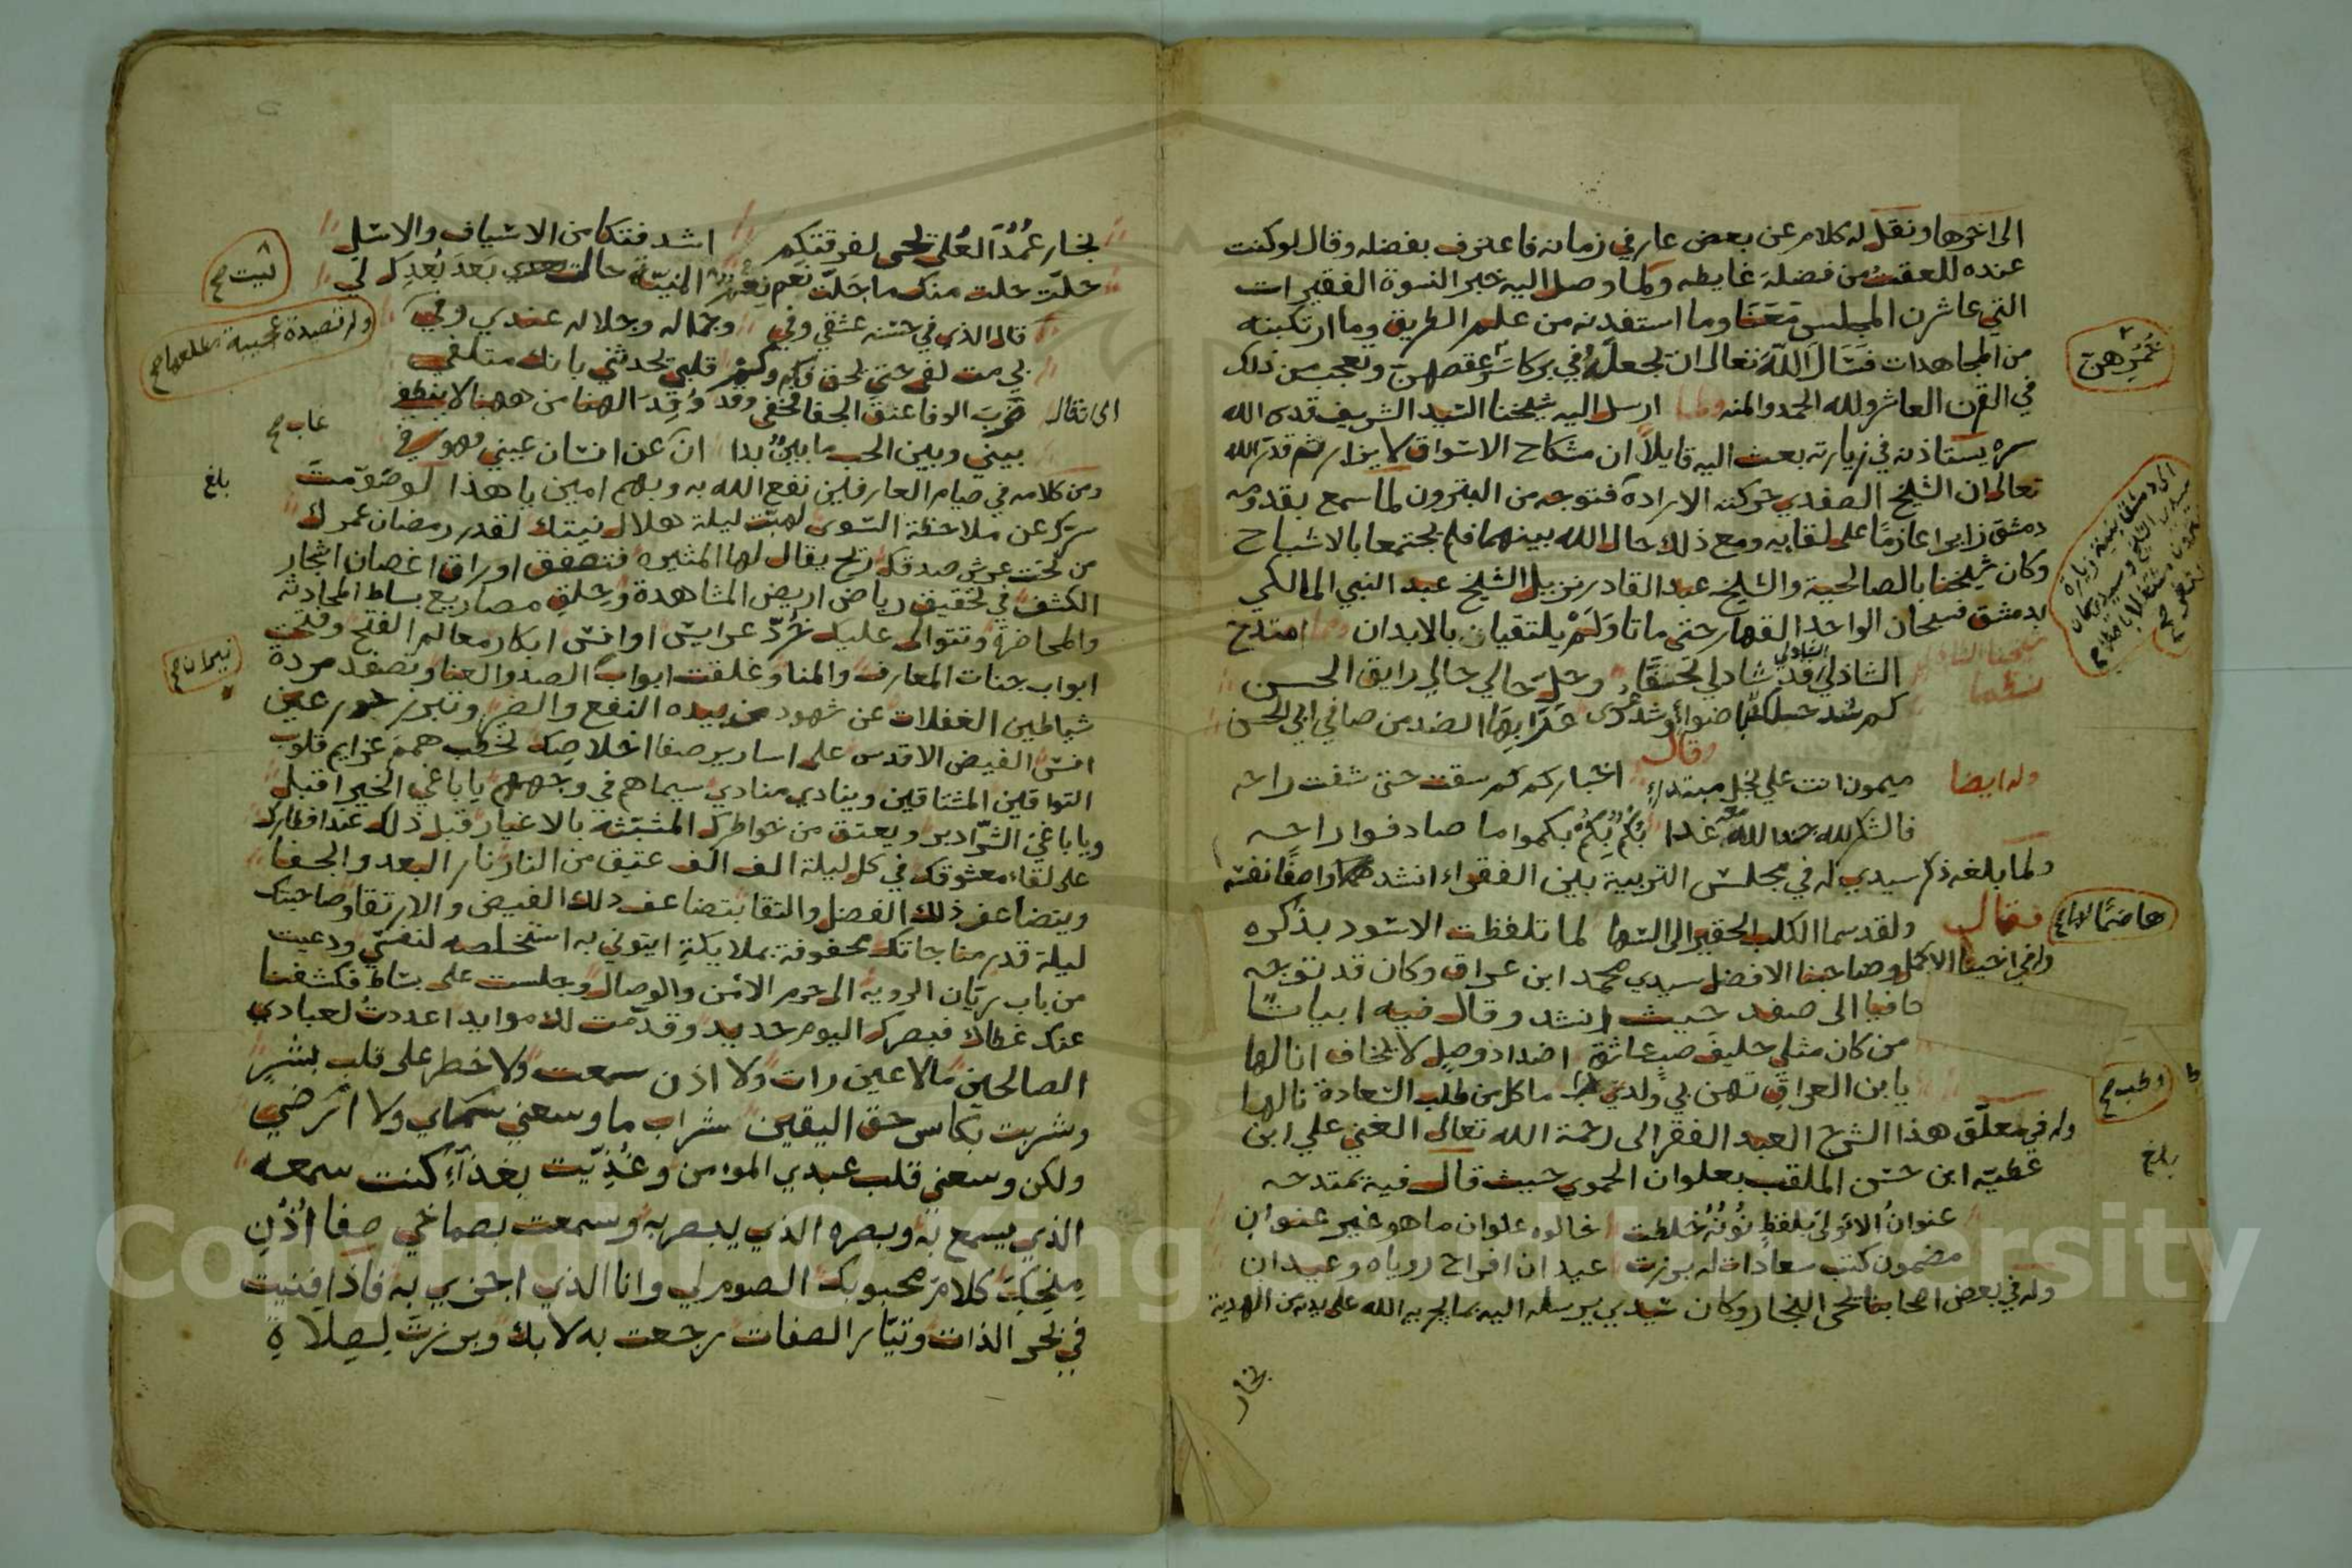 الى اخرها ونقل له كلام عن بعض عارفي زمانه فاعترف بفضله وقال لو كنت
عنده للعقت من فضلة غايطه ولما وصل اليه خبر النسوة الفقيرات
التي عاشرن المجلس معنا وما استفدنه من علم الطريق وما ارتكبنه
من المجاهدات فسال الله تعالى ان يجعله في بركات وتعجب من ذلك
في القرن العاشر ولله الحمد والمنه ولما ارسل اليه شيخنا السيد الشريف قدس الله
سره يستاذنه في زيارته بعث اليه قايلا ان مشكاح الاسواق لا يزار ثم قدر الله
تعالى ان الشيخ الصفدي حركته الارادة فتوجه من البترون لما سمع بقدومه
دمشق زايرا عازما على لقايه ومع ذلك حال الله بينهما فلم يجتمعا بالاشباح
وكان شيخنا بالصالحية والشيخ عبد القادر نزيل الشيخ عبد النبي المالكي
بدمشق فسبحان الواحد القهار حتى ماتا ولم يلتقيان بالابدان ولما امتدح
شيخنا الشاذلي
نظما
الشاذلي قد شاد لي تحققا وحل حالي حالي رايق الحسن
كم شد حبلا من صافي ابي الحسن
وقال
وله ايضا ميمون انت على نخل مبتدلا اخباركم كم سقت حتى شفت راحه
فالشكر لله حمد الله غدا بكم بكم بكموا ما صادفوا راحه
ولما بلغه ذكر سيدي له في مجلس التربية بين الفقراء انشد واصفا نفسه
هاضما لها
فقال ولقد سما الكلب الحقير الى السها لما تلفظت الاسود بذكره
وافي اخينا الاكمل وصاحبنا الافضل سيدي محمد ابن عراق وكان قد توجه
حافيا الى صفد حيث انشد وقال فيه ابياتا
من كان مثلي حليف صب عاشق اضداد وصل لا تخاف انا لها
يا بن العراق تهن بي ولدي ما كل من طلب السعادة نالها
وله في معلق هذا الشرح العبد الفقر الى رحمة الله تعالى الغني علي ابن
عطيه ابن حسن الملقب بعلوان الحموي حيث قال فيه يمتدحه
عنوان الاولى بلفظ نونه خلطت خالوه علوان ما هو غير عنوان
مضمون كتب سعادات له برزت عيد ان افراح روياه وعيدان
وله في بعض اصحابنا تحى النجار وكان سيدي يرسله اليه بما يجريه الله على يديه من الهدية
نجار
ثمرهن
وطب صح
بلغ
نجار عمد العلى تحى لفرقتكم اشد فتكا من الاسياف والاسل
حلت حلت منك ما جلت نعم نعم المنية حالت بعد بعدك لي
ليت صح
وله قصيدة عجيبة مطلعها صح
قال الذي في حسنه عشقي وفي وجماله وجلاله عندي وفي
بي مت لفرشتي بحق قلبي تحدثني بانك متلفي
الى ان قال ضرب الوفا عنق الجفا مخفى وقد وقد الهنا من ههنا لا ينطفي
بيني وبين الحب ما بين بدا ان عن انسان عيني فهو في
غاب صح
ومن كلامه في صيام العارفين نفع الله به وبهم امين يا هذا لو صومت
بلغ
سرك عن ملاحظة السوى لهبت ليلة هلال نيتك لقدر رمضان عمرك
من تحت عرش صدقك ريح يقال لها المثيره فتصفق اوراق اغصان اشجار
الكشف في تحقيق رياض اريض المشاهدة وحلق مصاريع بساط المحادثة
والمحاضرة وتتوالى عليك خرد عرايس اوانس ابكار معالم الفتح وفتحت
ابواب جنات المعارف والمنا وغلقت ابواب الصد والعنا وتصفد مردة
نيران صح
شياطين الغفلات عن شهود من بيده النفع والضر وتبرز حور عين
انس الفيض الاقدس على اسارير صفا اخلاصك لخطب همم عزايم قلوب
التواقين المشتاقين وينادي منادي سيماهم في وجههم يا باغي الخير اقبل
ويا باغي الشر ادبر ويعتق من خواطرك المشبثة بالاغيار قبل ذلك عند افطارك
على لقاء معشوقك في كل ليلة الف الف عتيق من النار نار البعد والجفا
ويتضاعف ذلك الفضل والتقا بتضاعف ذلك الفيض والارتقا وصاحبتك
ليلة قدر مناجاتك محفوفة بملايكة ايتوني به استخلصه لنفسي ودعيت
من باب ريان الرويه الى حرم الامن والوصال وجلست على بساط فكشفنا
عنك غطاك فبصرك اليوم حديد وقدمت لك موايد اعددت لعبادي
الصالحين ما لا عين رات ولا اذن سمعت ولا خطر على قلب بشر
وشربت بكاس حق اليقين شراب ما وسعني سماي ولا ارضي
ولكن وسعني قلب عبدي المومن وغذيت بغذاء كنت سمعه
الذي يسمع به وبصره الذي يبصر به وسمعت بصماخي صفا اذن
منحبك كلام محبوبك الصوم لي وانا الذي اجزي به فاذا فنيت
في بحر الذات وتيار الصفات رجعت به لا بك وبرزت لصلاة